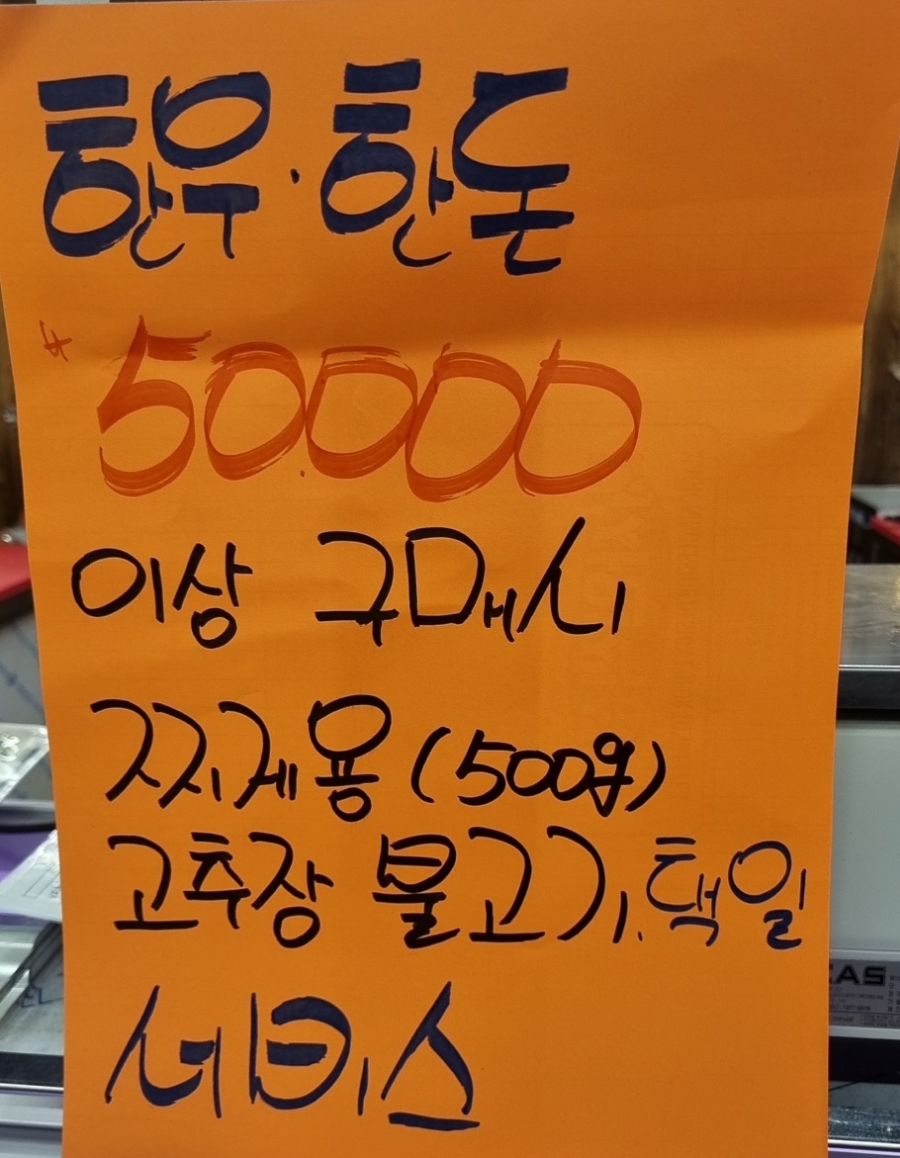 한우·한돈
* 50.000
이상 구매시
찌게용 (500g)
고추장 불고기. 택일
서비스
CAS